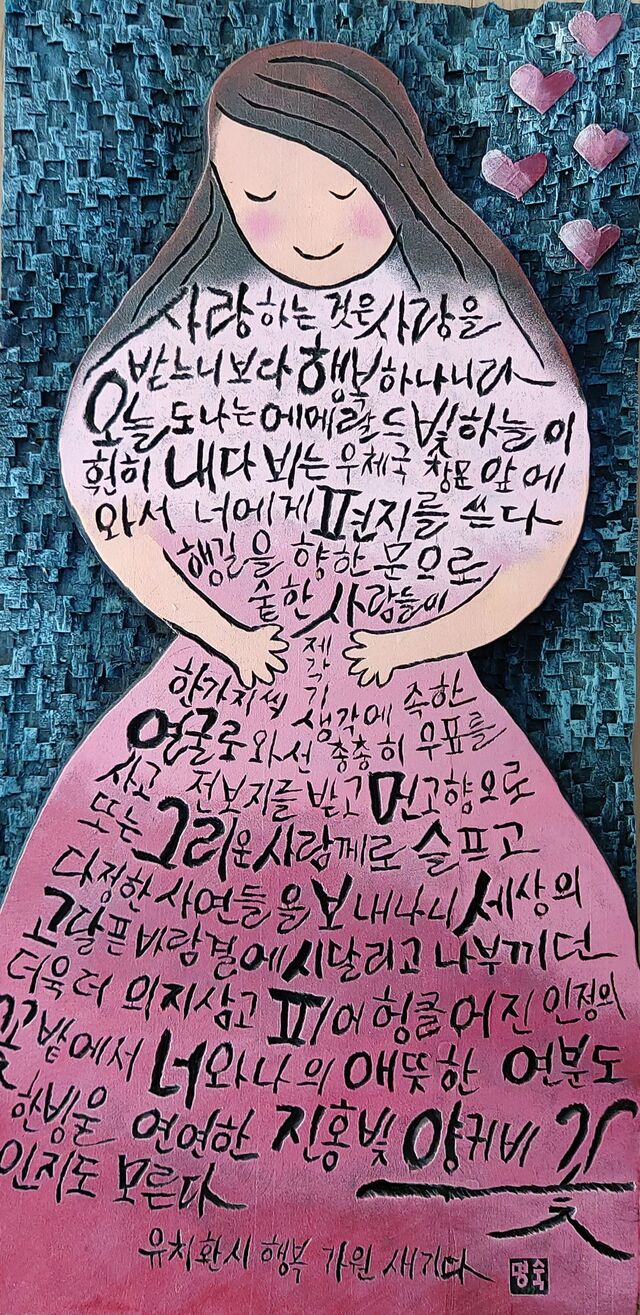 사랑하는 것은 사랑을
받느니보다 행복하나니라
오늘도 나는 에메랄드빛 하늘이
훤히 내다 뵈는 우체국 창문 앞에
와서 너에게 편지를 쓴다
행길을 향한 문으로
숱한 사람들이
제각기
한가지씩 생각에 족한
얼굴로 와선 총총히 우표를
사고 전보지를 받고 먼 고향으로
또는 그리운 사람께로 슬프고
다정한 사연들을 보내나니 세상의
고달픈 바람결에 시달리고 나부끼던
더욱 더 의지삼고 피어 헝클어진 인정의
꽃밭에서 너와 나의 애틋한 연분도
한방울 연연한 진홍빛 양귀비 꽃
인지도 모른다
유치환시 행복 가원 새기다
명숙